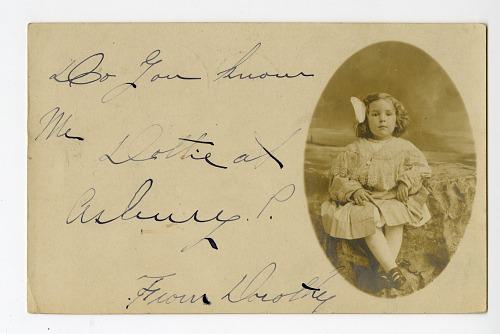 Do You know
Me
Dottie at
Asbury. P.
From Dorothy